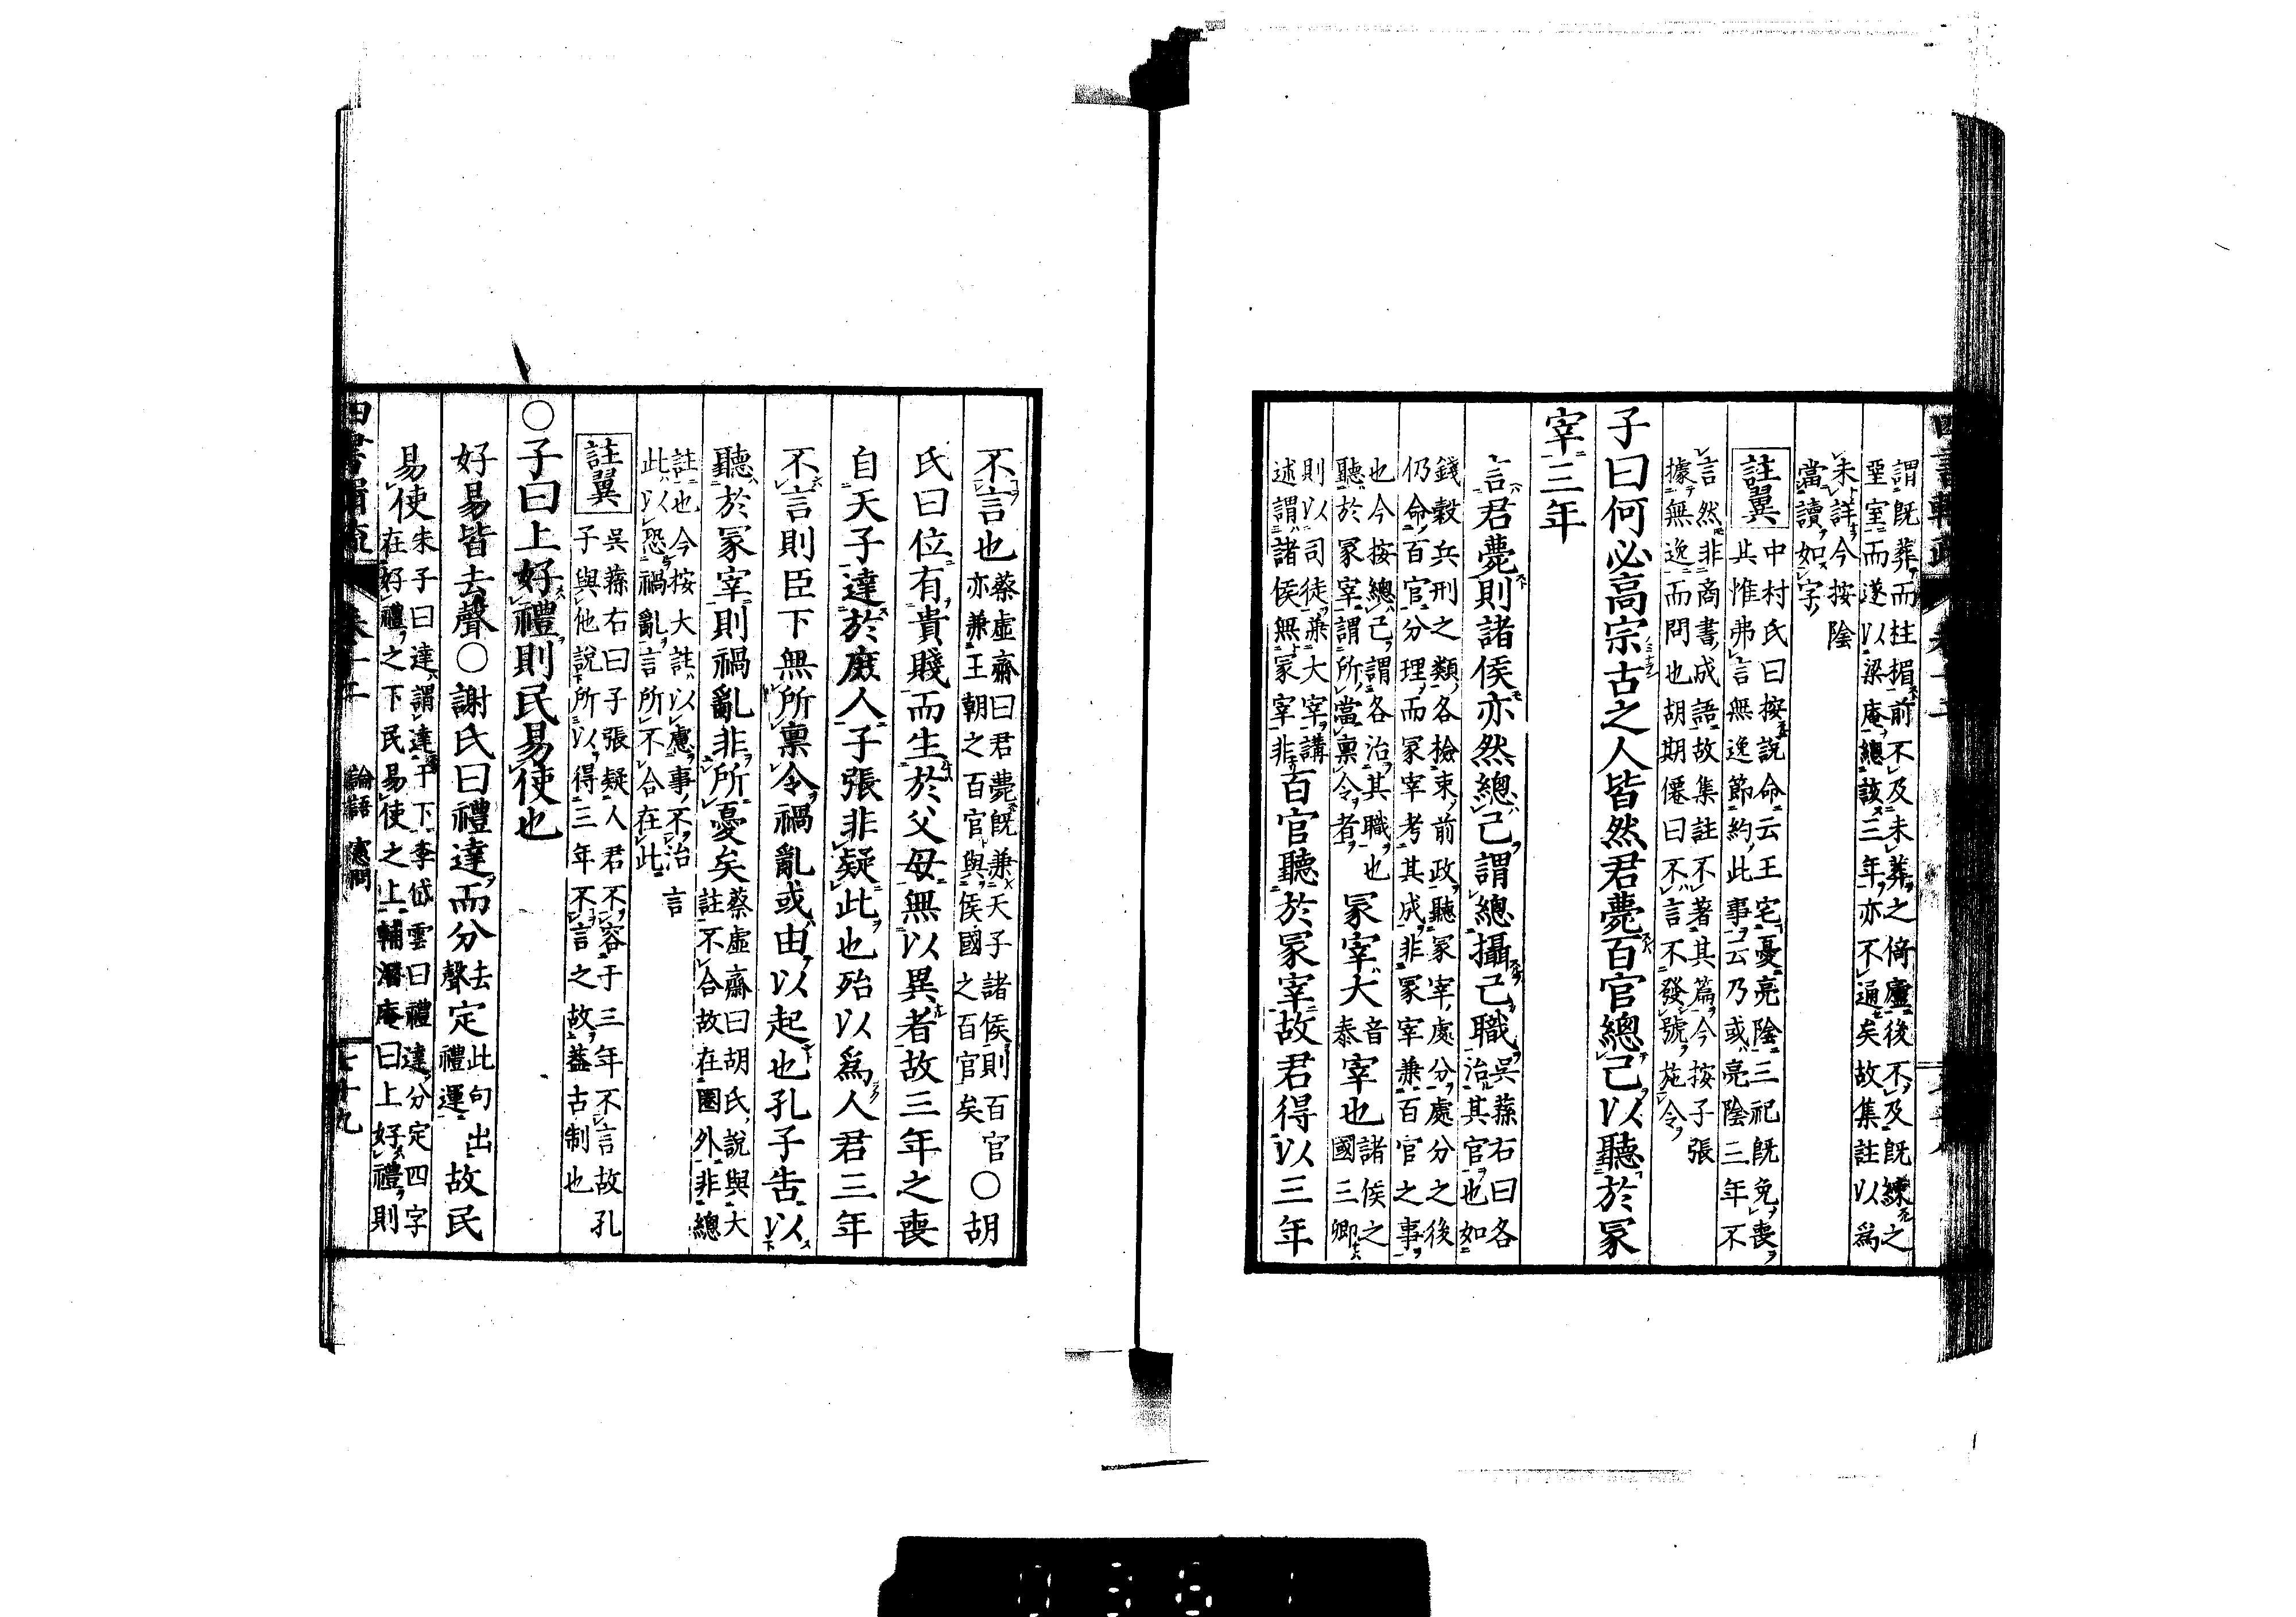 謂既葬而柱楣前不及未葬之倚廬後不及既練之
堊室而遂以梁庵總該三年亦不通矣故集註以爲
未詳今按陰
當讀如字
註翼
中村氏曰按說命云王宅憂亮陰三祀既免喪
其惟弗言無逸節約此事云乃或亮陰三年不
言然非商書成語故集註不著其篇今按子張
據無逸而問也胡期僊曰不言不發號施令
子曰何必高宗古之人皆然君薨百官總己以聽於冢
宰三年
言君薨則諸侯亦然總己謂總攝己職
吳蓀右曰各
治其官也如
錢穀兵刑之類各檢束前政聽冢宰處分處分之後
仍命百官分理而冢宰考其成非冢宰兼百官之事
也今按總己謂各治其職也
聽於冢宰謂所當稟令者
冢宰大
音
泰
宰也
諸侯之
國三卿
則以司徒兼大宰講
述謂諸侯無冢宰非
百官聽於冢宰故君得以三年
不言也
蔡虛齋曰君薨既兼天子諸侯則百官
亦兼王朝之百官與侯國之百官矣
○胡
氏曰位有貴賤而生於父母無以異者故三年之喪
自天子達於庶人子張非疑此也殆以爲人君三年
不言則臣下無所稟令禍亂或由以起也孔子告以
聽於冢宰則禍亂非所憂矣
蔡虛齋曰胡氏說與大
註不合故在圈外非總
註也今按大註以慮事不治言
此以恐禍亂言所不合在此
註翼
吳蓀右曰子張疑人君不容于三年不言故孔
子與他說所以得三年不言之故蓋古制也
○子曰上好禮則民易使也
好易皆去聲○謝氏曰禮達而分
去
聲
定
此句出
禮運
故民
易使
朱子曰達謂達于下李岱雲曰禮達分定四字
在好禮之下民易使之上輔潛庵曰上好禮則
卷十二
論語 憲問
七十九